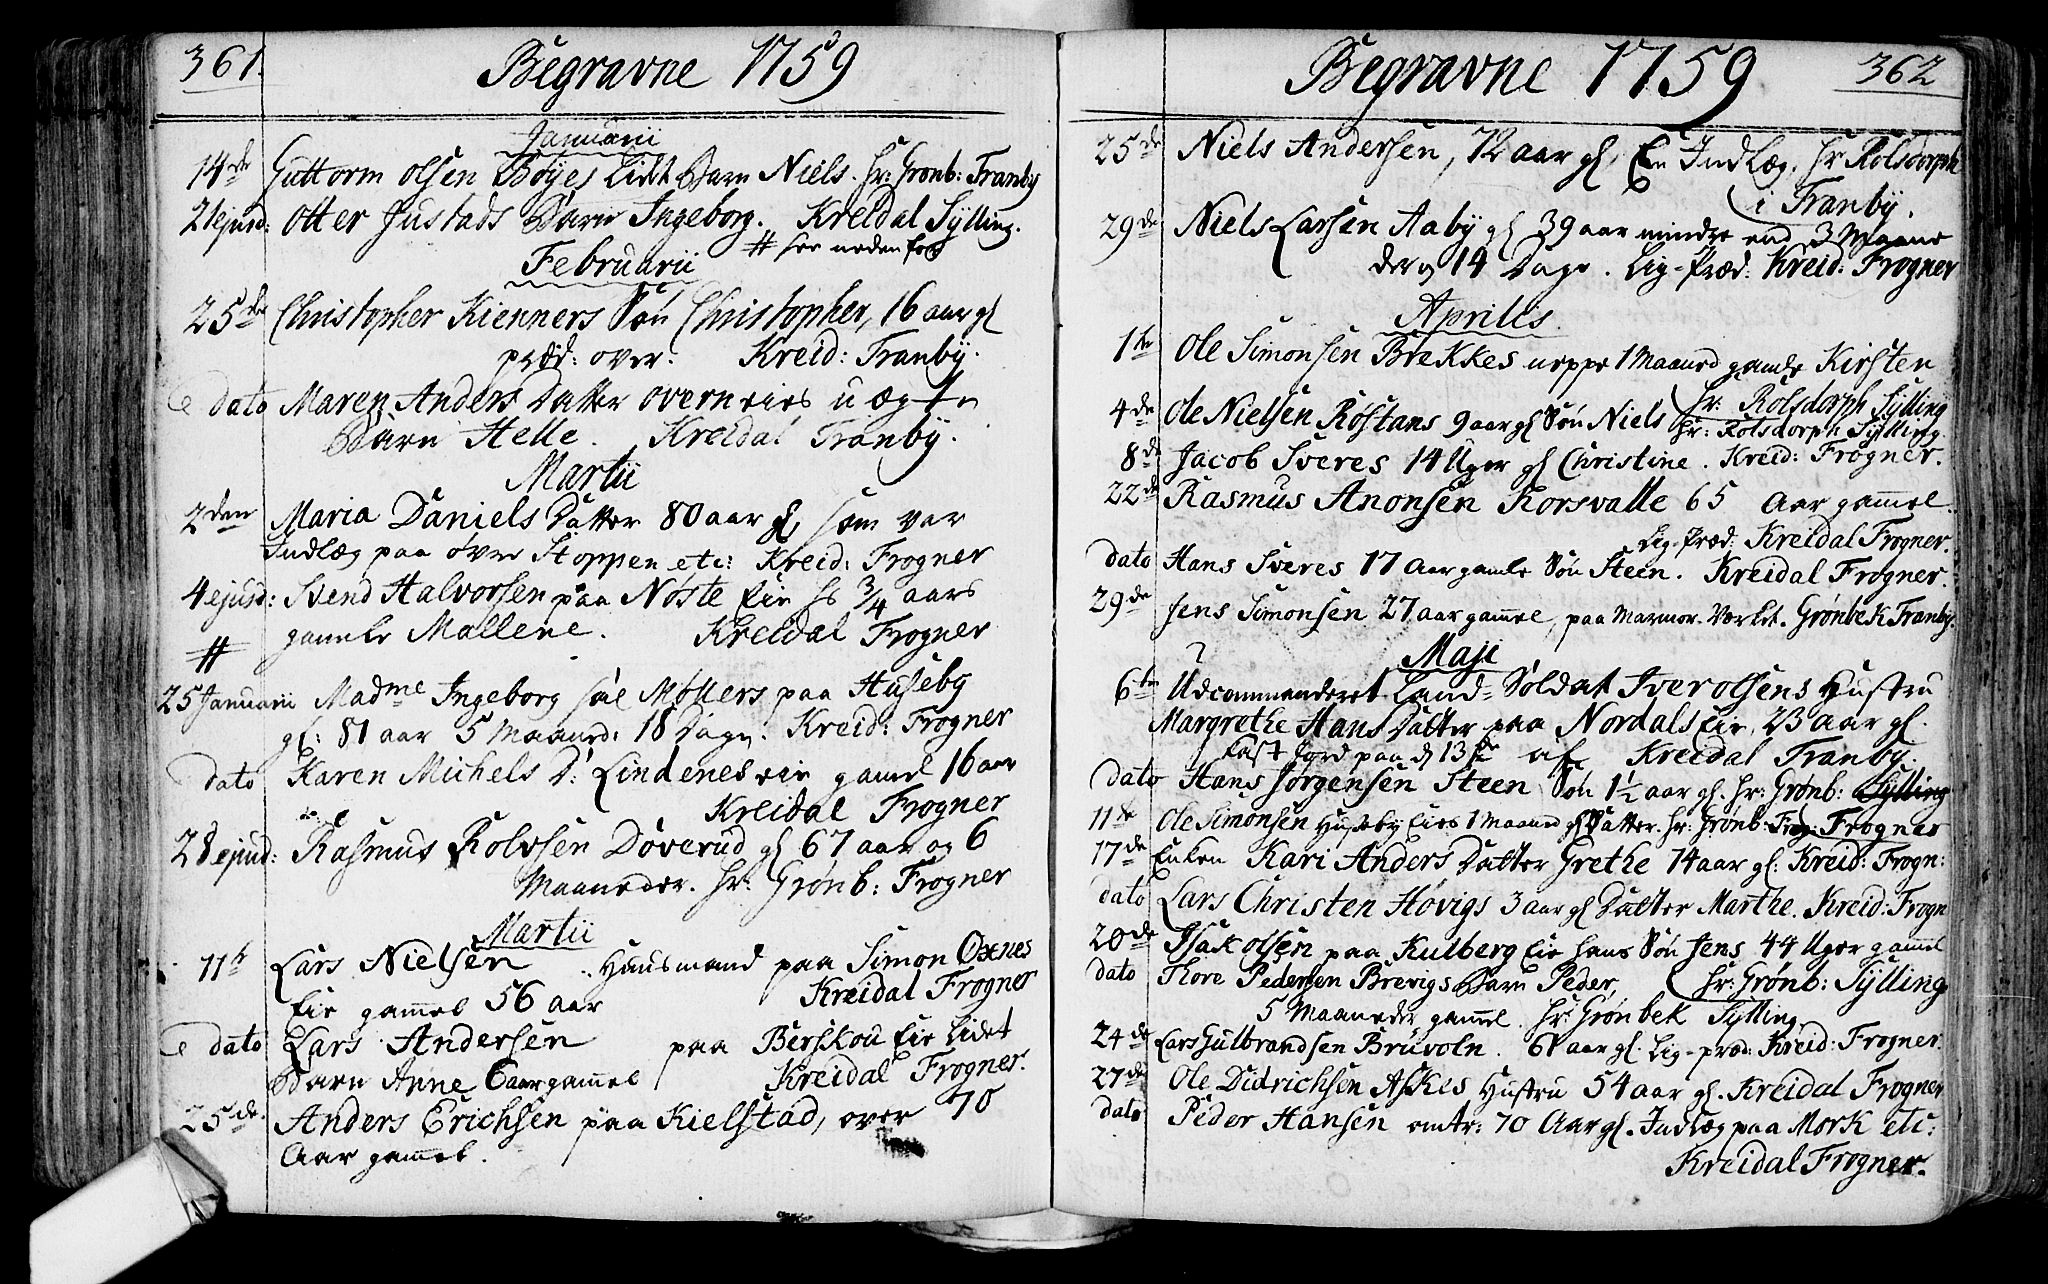 361.
Begravne 1759
Januarii
14de Guttorm Olsen Bøyes lidt Barn Niels. Hr: Grønb: Franby
21 ejusd: Otter Justads Barn Ingeborg. Kreidal Sylling.
# see nedenfor
Februarii
25de Christopher Kienners Søn Christopher, 16 aar gl
præd: over. Kreid: Franby.
dato Maren Anders Datter overneies uægte
Barn Helle. Kreidal Franby.
Martii
2den Maria Daniels Datter 80 aar gl, som var
Indlæg paa øvre Stoppen etc: Kreid: Frogner
4 ejusd: Svend Halvorsen paa Nøste Eie hs 3/4 aars
gamle Mallene. Kreidal Frogner
#
25 Januarii Madme Ingeborg sal Møllers paa Huseby
gl: 81 aar 5 Maaned: 18 Dage. Kreid: Frogner
dato Karen Michels D: Lindenes eie gamel 16 aar
Kreidal Frogner
28 ejusd: Rasmus Rolvsen Døverud gl 67 aar og 6
Maaneder. Hr: Grønb: Frogner
Martii
11te Lars Nielsen Huusmand paa Simon Oxnes
Eie gammel 56 aar Kreidal Frogner
dato Lars Andersen paa Berskou Eie lidet
Barn Anne 6 aar gammel Kreidal Frogner.
25de Anders Erichsen paa Kielstad, over 70
Aar gammel.
Begravne 1759
362
25de Niels Andersen, 72 aar gl, En Indlæg. Hr Rolsdorph
i Franby.
29de Niels Larsen Aaby gl 39 aar mindre end 3 Maane
der og 14 Dage. Lig-Præd: Kreid: Frogner
Aprilis
1te Ole Simonsen Brekkes neppe 1 Maaned gamle Kirsten
Hr: Rolsdorph Sylling
4de Ole Nielsen Røstans 9 aar gl Søn Niels Hr: Rolsdorph Sylling.
8de Jacob Sveres 14 Uger gl Christine. Kreid: Frogner.
22de Rasmus Anonsen Korsvalle 65 Aar gammel.
Lig-Præd: Kreidal Frogner.
dato Hans Sveres 17 Aar gamle Søn Steen. Kreidal Frogner.
29de Jens Simonsen 27 aar gammel, paa Marmor-Værket. Grønbek Franby.
Maji
6te Udcommanderet Land-Soldat Iver Olsens Hustru
Margrethe Hans Datter paa Nordals Eie, 23 aar gl.
Kast Jord paa d 13de af Kreidal Franby.
dato Hans Jørgensen Steen Søn 1½ aar gl. Hr: Grønb: Sylling
11te Ole Simonsen Huseby Eies 1 Maaned gl Datter. Hr: Grønb: Frog: Frogner
17de Enken Kari Anders Datter Grethe 74 aar gl: Kreid: Frogn:
dato Lars Christen Høvigs 3 aar gl Datter Marthe. Kreid: Frogn
20de Isak Olsen paa Kulberg Eie hans Søn Jens 44 Uger gammel
Hr: Grønb: Sylling
dato Thore Pedersen Brevigs Barn Peder,
5 Maaneder gammel. Hr: Grønbek Sylling
24de Lars Gulbrandsen Bruvoln. 61 aar gl. Lig-præd: Kreid: Frogner.
27de Ole Didrichsen Askes Hustru 54 aar gl. Kreidal Frogner
dato Peder Hansen omtr: 70 Aar gl. Indlæg paa Mørk etc:
Kreidal Frogner.